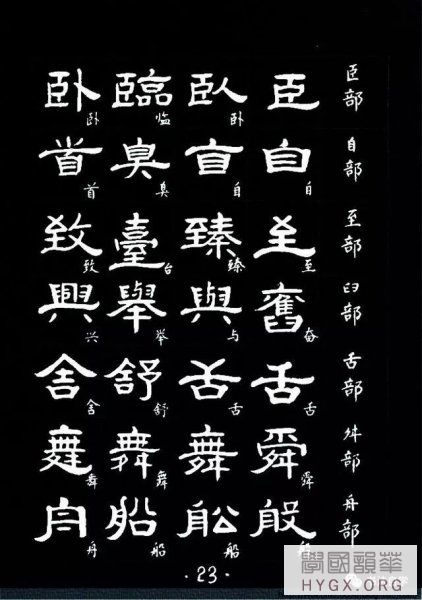 臣部 臣 臥卧 臨临 卧卧
自部 自自 自 臭臭 首首
至部 至至 臻臻 臺台 致致
臼部 奮奋 與与 舉举 興兴
舌部 舌舌 舌舌 舒舒 舍舍
舛部 舜舜 舞 舞舞 舞舞
舟部 般 舩船 船船 舟舟
·23·
學國韻華
HYGX.ORG